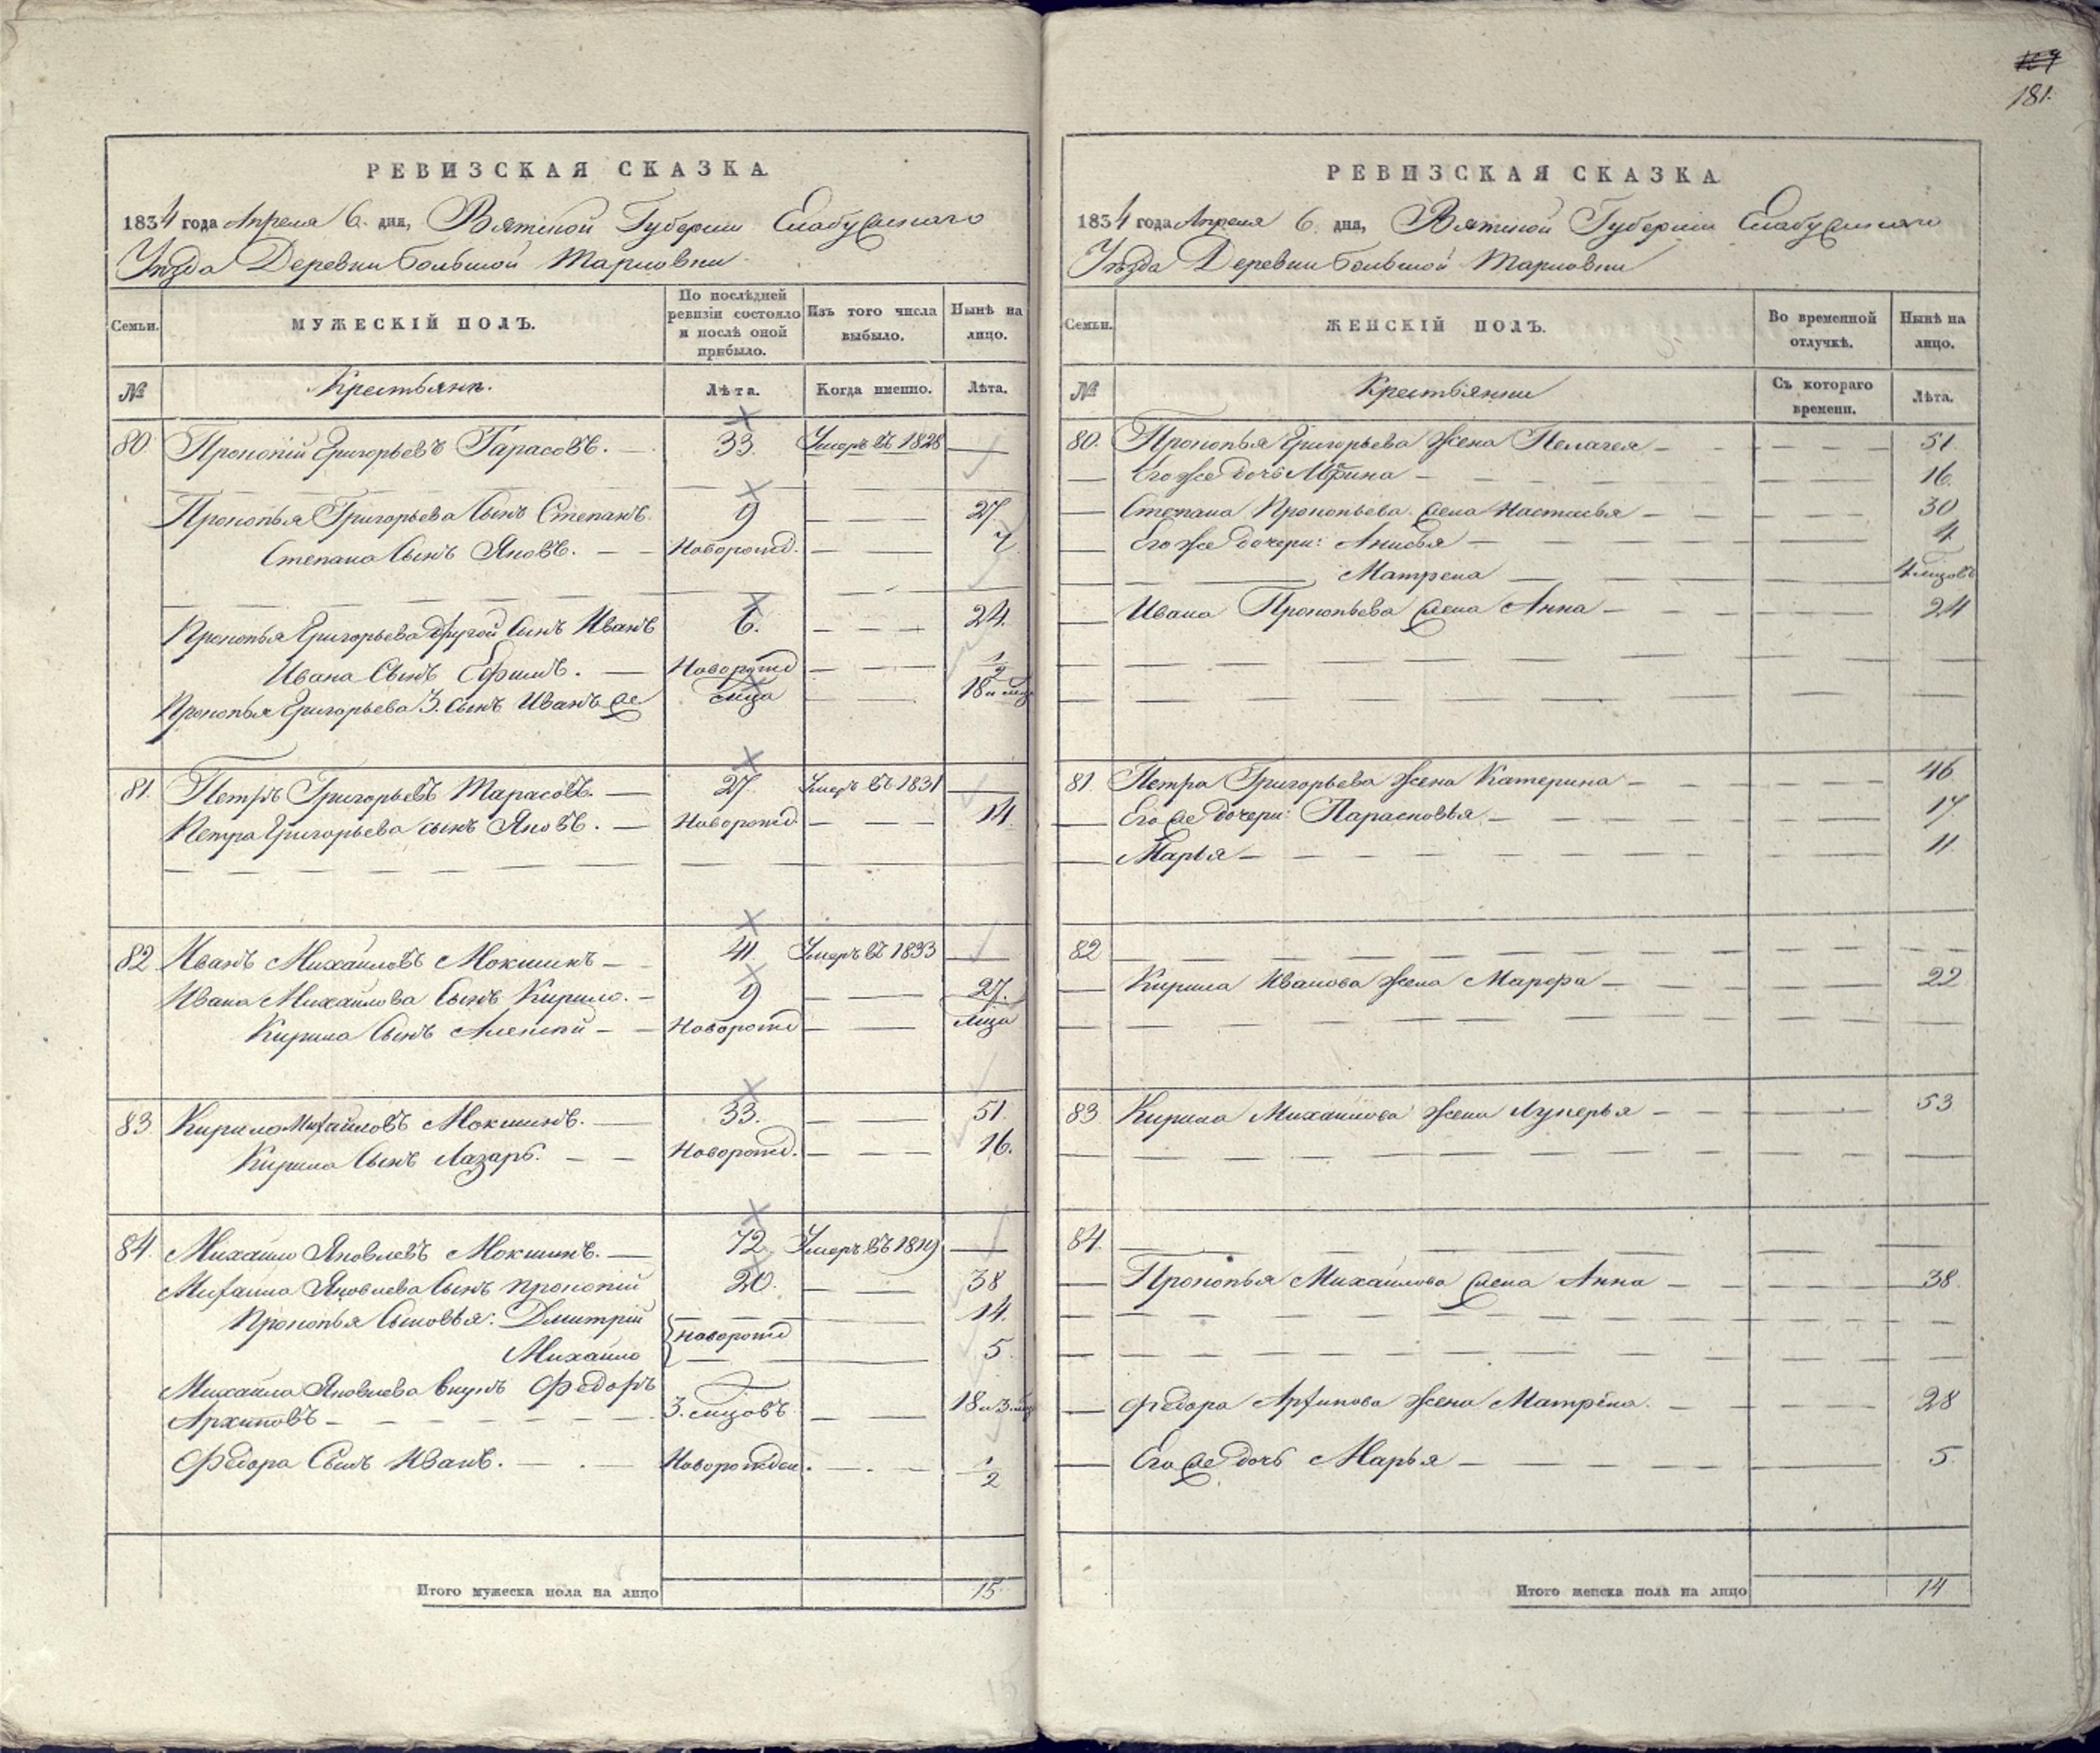 181.
РЕВИЗСКАЯ СКАЗКА
1834 года Апреля 6. дня, Вятской Губернии Елабужскаго
Уѣзда Деревни Большой Тарловки
Семьи. МУЖЕСКІЙ ПОЛЪ. По послѣдней ревизіи состояло и послѣ оной прибыло. Изъ того числа выбыло. Нынѣ на лицо.
№ Крестьянѣ. Лѣта. Когда именно. Лѣта.
80 Прокопій Григорьевъ Тарасовъ. 33. Умеръ въ 1828
Прокопья Григорьева Сынъ Степанъ. 9 27
Степана Сынъ Яковъ. Новорожд. 7
Прокопья Григорьева другой Сынъ Иванъ 6. 24.
Ивана Сынъ Ефимъ. Новорожд 1/2
Прокопья Григорьева 3. Сынъ Иванъ же мца 18 и мца
81. Петръ Григорьевъ Тарасовъ. 27 Умеръ въ 1831
Петра Григорьева сынъ Яковъ. Новорожд 14.
82 Иванъ Михайловъ Мокшинъ 41. Умеръ въ 1833
Ивана Михайлова Сынъ Кирило. 9 27.
Кирила Сынъ Алексѣй Новорожд мца
83. Кирило Михайловъ Мокшинъ. 33. 51.
Кирила Сынъ Лазарь. Новорожд. 16.
84. Михайло Яковлевъ Мокшинъ. 72 Умеръ въ 1819
Михаила Яковлева Сынъ Прокопій 20. 38
Прокопья Сыновья: Дмитрій 14.
Михайло Новорожд 5.
Михайла Яковлева внукъ Федоръ
Архиповъ 3. мцовъ 18 и 3. мц
Федора Сынъ Иванъ. Новорожден. 1/2
Итого мужеска пола на лицо 15.
РЕВИЗСКАЯ СКАЗКА
1834 года Апреля 6. дня, Вятской Губерніи Елабужскаго
Уѣзда Деревни Большой Тарловки
Семьи. ЖЕНСКІЙ ПОЛЪ. Во временной отлучкѣ. Нынѣ на лицо.
№ Крестьянки Съ котораго времени. Лѣта.
80. Прокопья Григорьева Жена Пелагея 51.
Его же дочь Ирина 16.
Степана Прокопьева жена Настасья 30
Его же дочери: Анисья 4.
Матрена 4 мцовъ
Ивана Прокопьева жена Анна 24
81. Петра Григорьева Жена Катерина 46
Его же дочери: Парасковья 17.
Марья 11.
82
Кирила Иванова Жена Марфа 22
83 Кирила Михайлова Жена Лукерья 53
84.
Прокопья Михайлова жена Анна 38.
Федора Архипова Жена Матрена. 28
Его же дочь Марья 5.
Итого женска пола на лицо 14